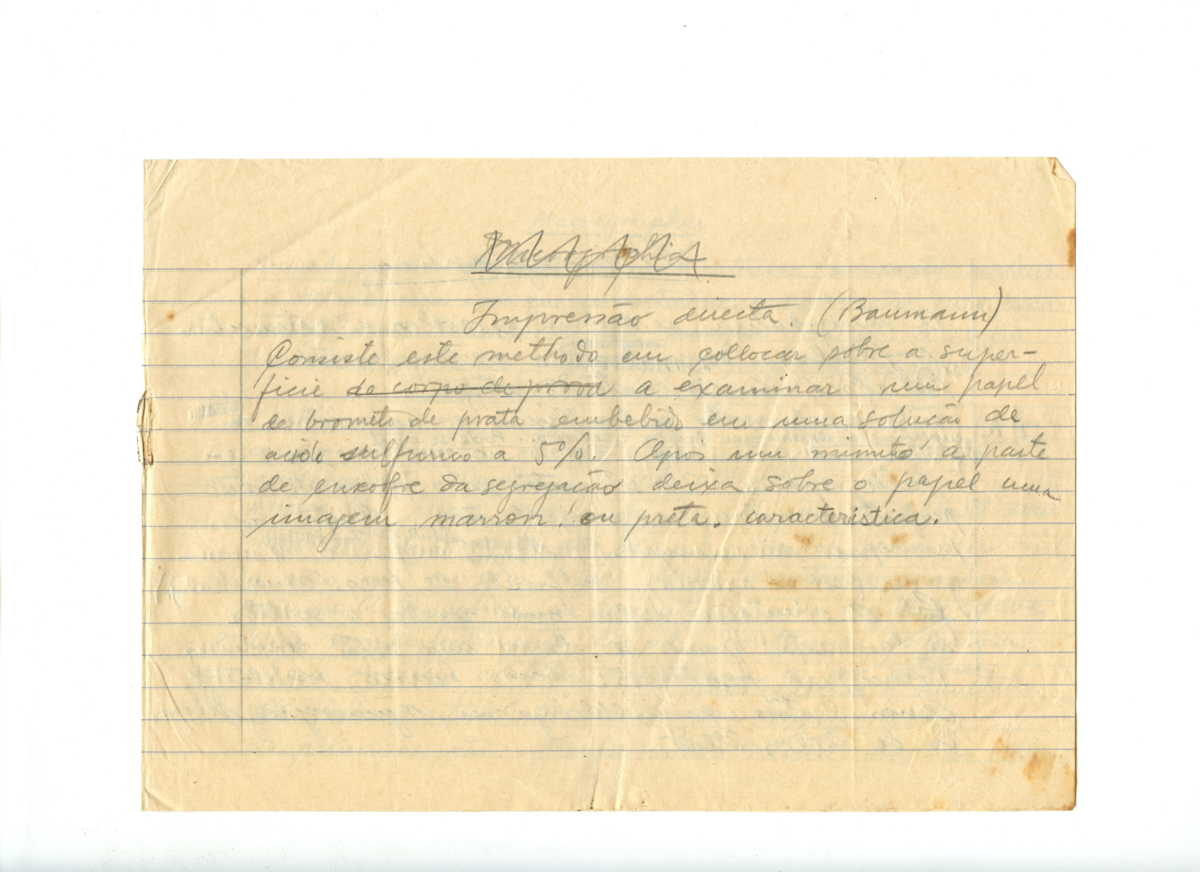 Impressão directa. (Baumann)
Consiste este methodo em collocar sobre a super-
ficie de corpo de prova a examinar um papel
de brometo de prata embebido em uma solução de
acido sulfurico a 5%. Apos um minuto a parte
de enxofre da segregação deixa sobre o papel uma
imagem marron ou preta. caracteristica.